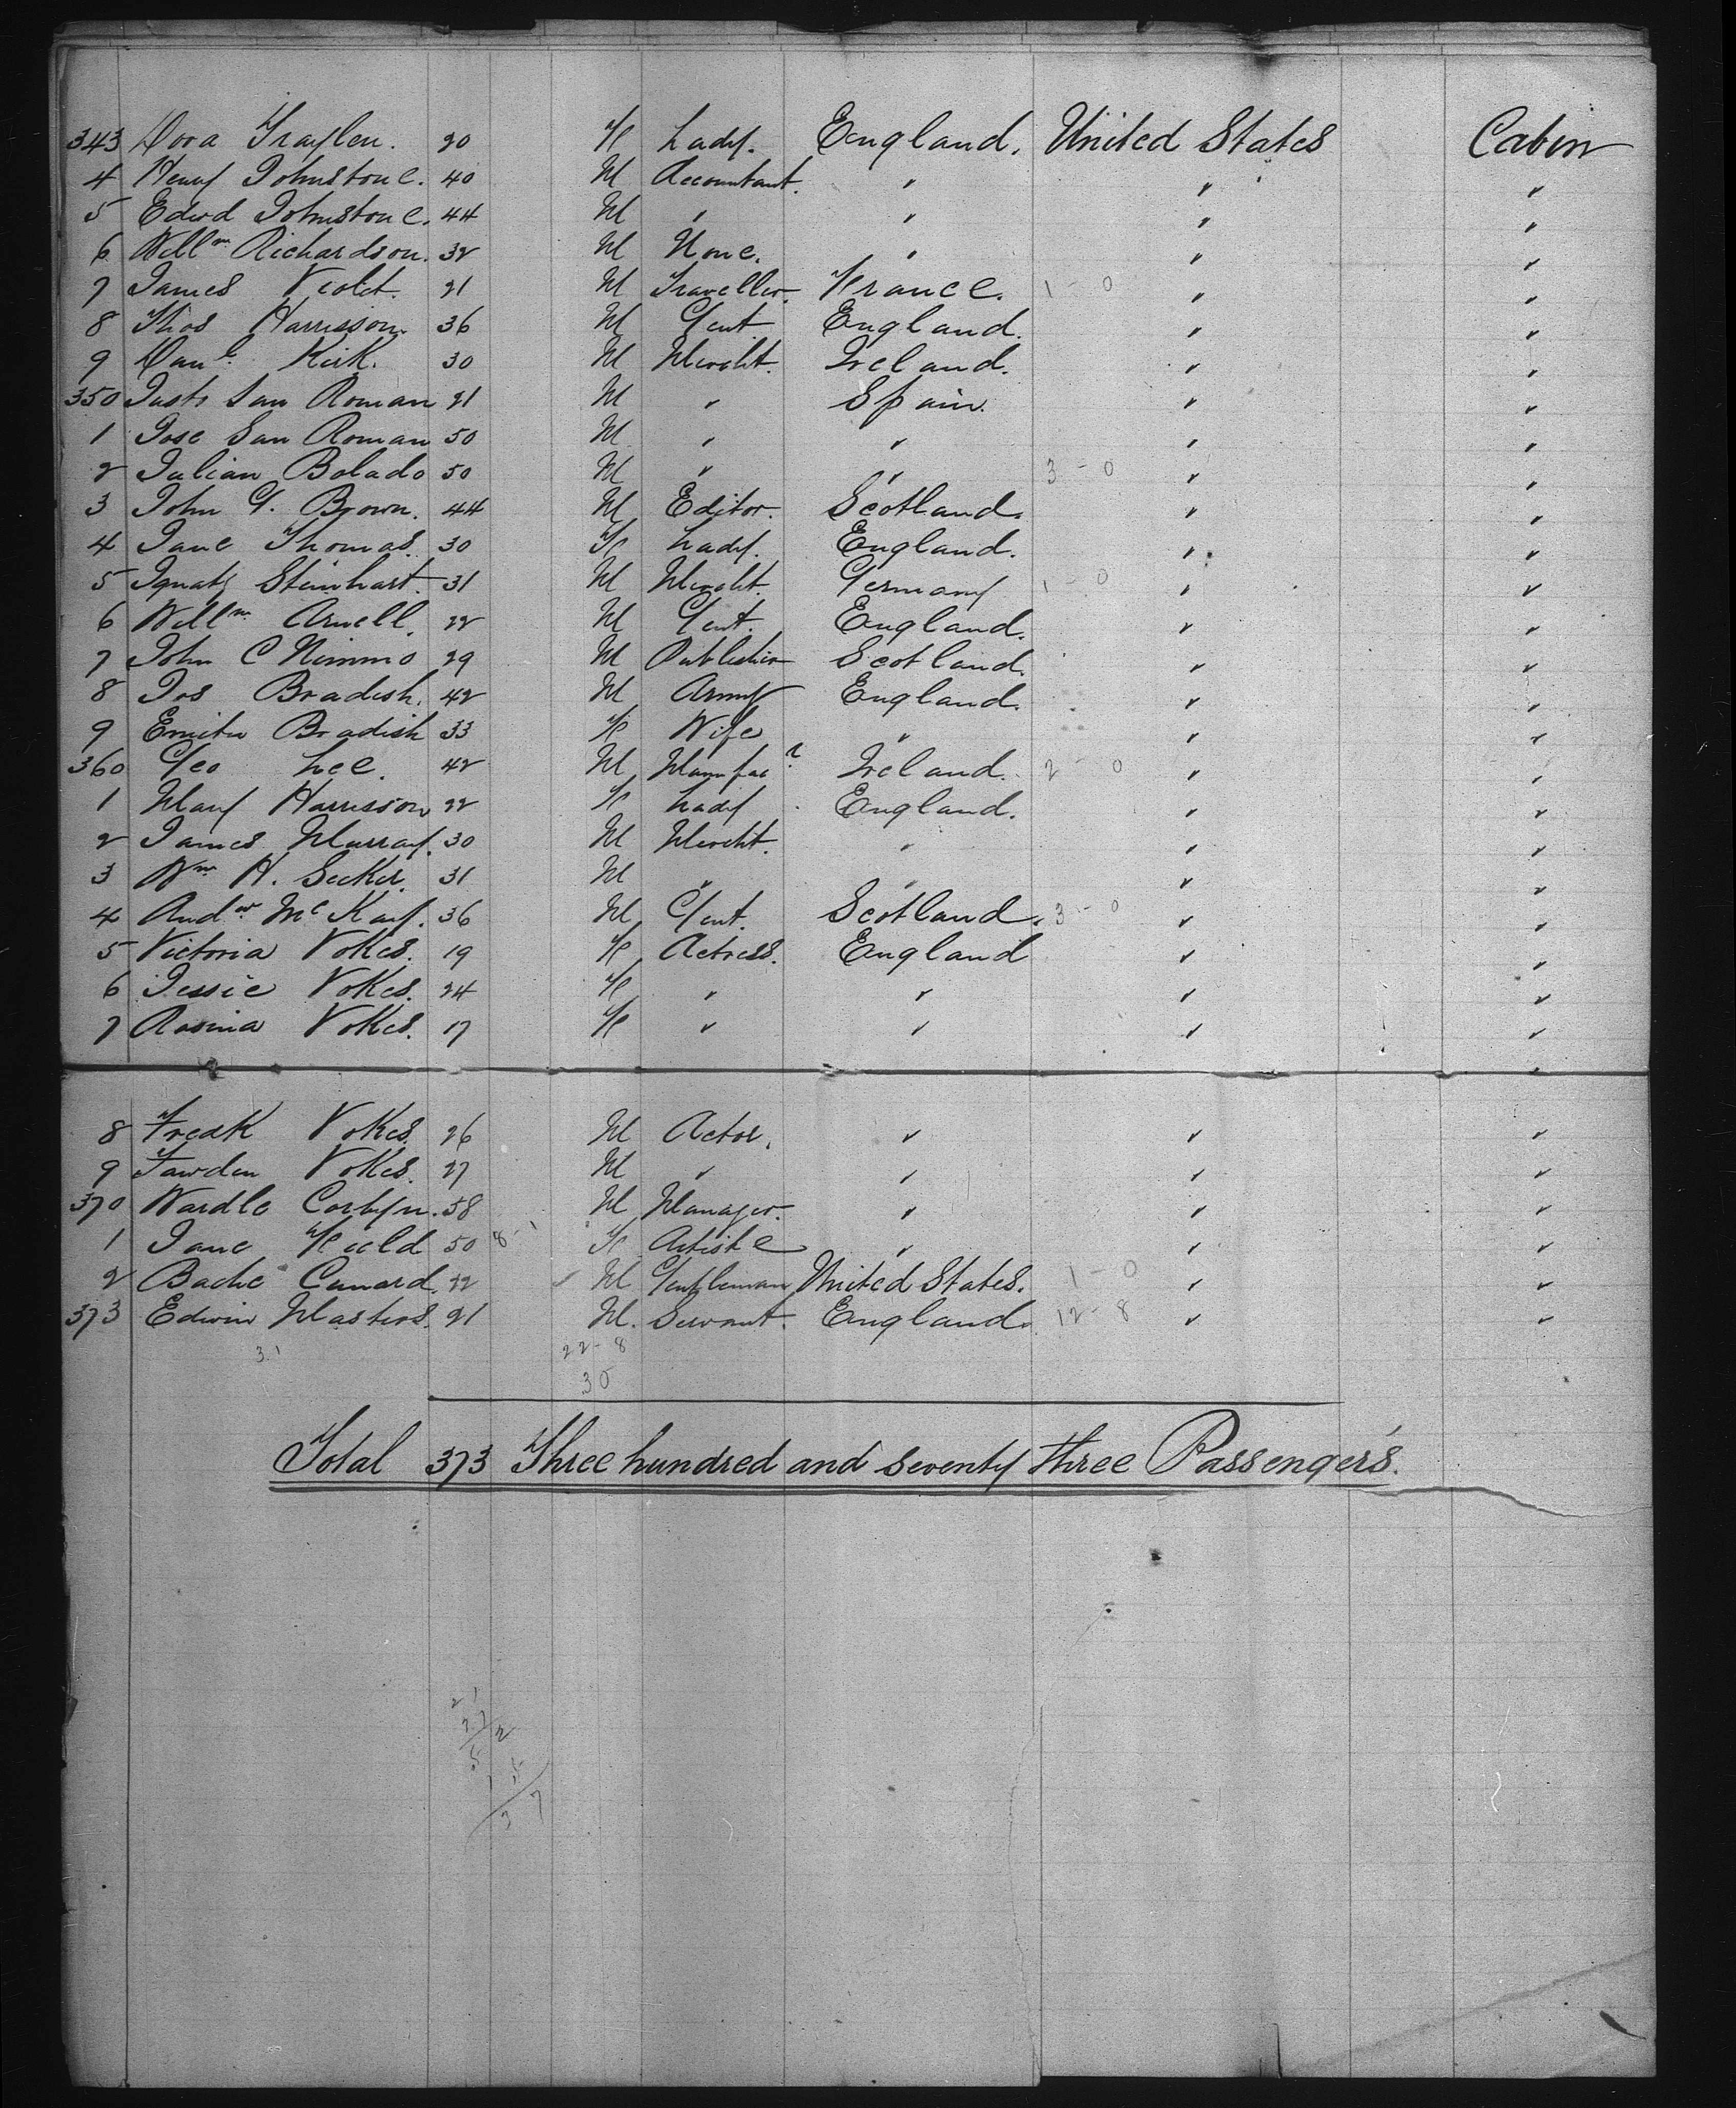 343 Dora Traylen. 20 F Lady. England. United States Cabin
4 Henry Johnstone. 40 M Accountant. " " "
5 Edwd Johnstone. 44 M " " " "
6 Willm Richardson. 32 M None. " " "
7 James Violet. 21 M Traveller. France. 1-0 " "
8 Thos Harrisson. 36 M Gent England. " "
9 Danl. Kirk. 30 M Mercht. Ireland. " "
350 Justo San Roman 21 M " Spain. " "
1 Jose San Roman 50 M " " " "
2 Julian Bolado 50 M " " 3-0 " "
3 John G. Brown. 44 M Editor. Scotland. " "
4 Jane Thomas 30 F Lady. England. " "
5 Ignatz Steinhart. 31 M Mercht. Germany 1-0 " "
6 Willm Arnell. 22 M Gent. England. " "
7 John C Nimmo 29 M Publisher Scotland. " "
8 Jos Bradish. 42 M Army England. " "
9 Bradish 33 F Wife " " "
360 Geo Lee. 42 M Manufacr Ireland. 2-0 " "
1 Mary Harrisson 22 F Lady England. " "
2 James Murray. 30 M Mercht. " " "
3 Wm H. Secker. 31 M " " " "
4 Andw McKay. 36 M Gent. Scotland. 3-0 " "
5 Victoria Vokes. 19 F Actress. England " "
6 Jessie Vokes. 24 F " " " "
7 Rosina Vokes. 17 F " " " "
8 Fredk Vokes. 26 M Actor. " " "
9 Fawdon Vokes. 27 M " " " "
370 Wardle Corbyn. 58 M Manager. " " "
1 Jane Field 50 8-1 F Artiste " " "
2 Bache Cunard. 22 M Gentleman United States. 1-0 " "
373 Edwin Masters. 21 M. Servant. England. 12-8 " "
31 22-8
30
Total 373 Three hundred and seventy three Passengers.